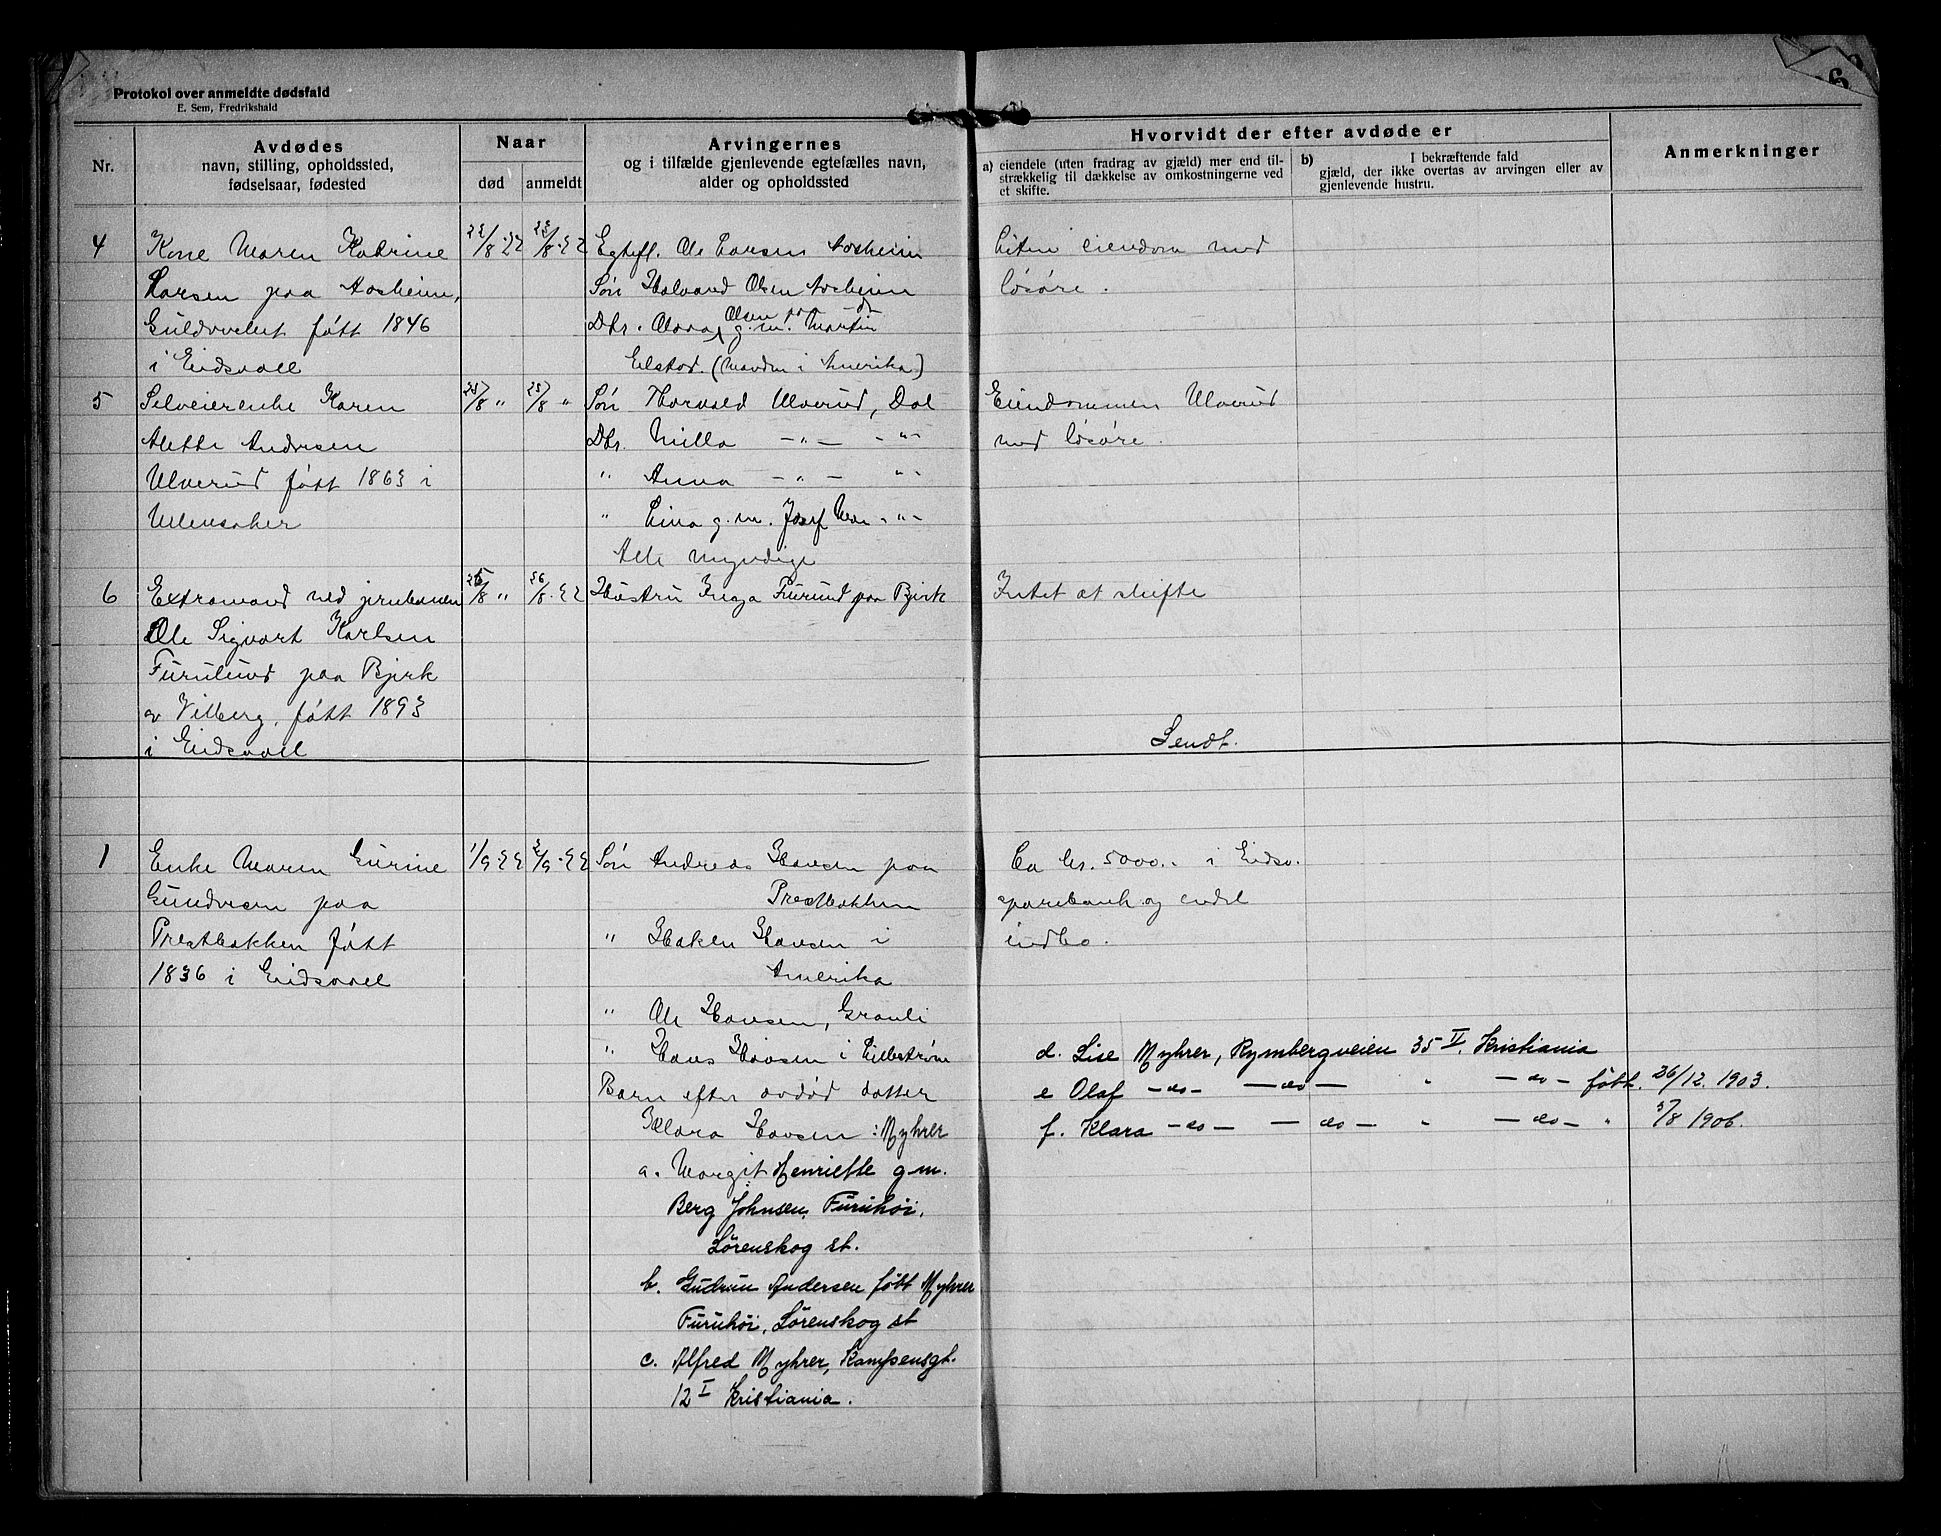 6
Protokol over anmeldte dødsfald
E. Sem, Fredrikshald
Nr.
Avdødes
navn, stilling, opholdssted,
fødselsaar, fødested
Naar
død
anmeldt
Arvingernes
og i tilfælde gjenlevende egtefælles navn,
alder og opholdssted
Hvorvidt der efter avdøde er
a) eiendele (uten fradrag av gjæld) mer end til-
strækkelig til dækkelse av omkostningerne ved
et skifte.
b) I bekræftende fald
gjæld, der ikke overtas av arvingen eller av
gjenlevende hustru.
Anmerkninger
4
Kone Maren Katrine
Larsen paa Aasheim,
Guldverket født 1846
i Eidsvoll
/8-22
/8-22
Egtefl. Ole Larsen Aasheim
Søn Halvard Olsen Aasheim
Dtr. Olava Olsen g.m. Martin
Elstad. (Manden i Amerika)
Liten eiendom med
løsøre.
5
Selveierenke Karen
Alette Andresen
Ulverud født 1863 i
Ullensaker
25/8 "
25/8 "
Søn Thorvald Ulverud, Dal
Dtr. Milla -"- -"-
" Anna -"- "-
" Lina g.m. Josef -"-
Alle myndige
Eiendommen Ulverud
med løsøre.
6
Extramand ved jernbanen
Ole Sigvart Karlsen
Furulund paa Bjørk
av Vilberg, født 1893
i Eidsvoll
/8 "
26/8-22
Hustru Inga Furund paa Bjørk
Intet at skifte
Sendt.
1
Enke Maren Gurine
Gundersen paa
Prestbakken født
1836 i Eidsvoll
1/9 22
2/9-22
Søn Andreas Hansen paa
Prestbakken
" Haken Hansen i
Amerika
" Ole Hansen, Granli
" Hans Hansen i Lillestrøm
Barn efter avdød datter
Klara Hansen : Myhrer
a. Margit Henriette g.m.
Berg Johnsen, Furuhøi,
Lørenskog st.
b. Gudrun Andersen født Myhrer
Furuhøi, Lørenskog st
c. Alfred Myhrer, Kampensgt.
12 I Kristiania.
Ca kr. 5000.- i Eidsv.
sparebank og endel
indbo.
d. Lise Myhrer, Rymbergveien 35 II, Kristiania
e Olaf -do- -do- " -do- født. 26/12. 1903.
f. Klara -do- -do- " -do- " /8 1906.